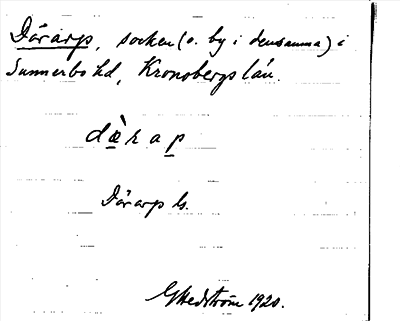 Dörarp, socken (o. by i densamma) i
Sunnerbo hd, Kronobergs län.
dœ̀rap
Dörarp ls.
GHedström 1920.